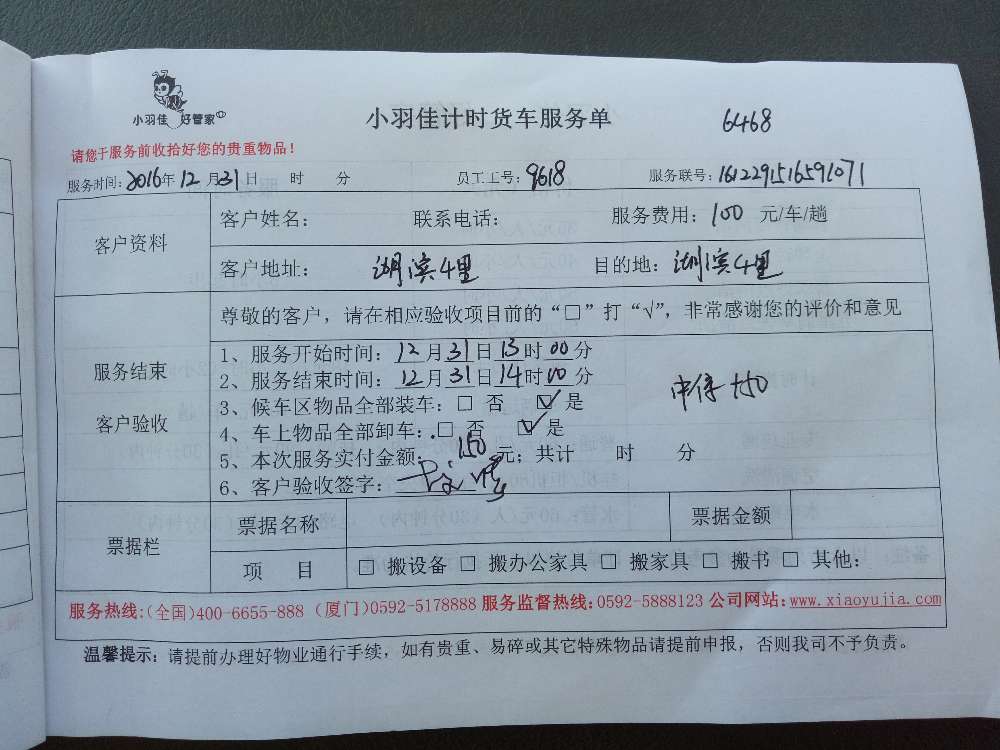 小羽佳 好管家
小羽佳计时货车服务单 6468
请您于服务前收拾好您的贵重物品！
服务时间：2016年12月31日 时 分 员工工号：9618 服务联号：1612291516591071
客户资料
客户姓名： 联系电话： 服务费用：100 元/车/趟
客户地址： 湖滨4里 目的地：湖滨4里
服务结束
客户验收
尊敬的客户，请在相应验收项目前的“□”打“√”，非常感谢您的评价和意见
1、服务开始时间：12月31日13时00分
2、服务结束时间：12月31日14时00分
3、候车区物品全部装车：□ 否 ☑ 是
4、车上物品全部卸车：□ 否 ☑ 是
5、本次服务实付金额：150元；共计 时 分
6、客户验收签字：
中停+50
票据栏
票据名称 票据金额
项 目 □ 搬设备 □ 搬办公家具 □ 搬家具 □ 搬书 □ 其他：
服务热线：(全国)400-6655-888 (厦门)0592-5178888 服务监督热线：0592-5888123 公司网站：www.xiaoyujia.com
温馨提示：请提前办理好物业通行手续，如有贵重、易碎或其它特殊物品请提前申报，否则我司不予负责。